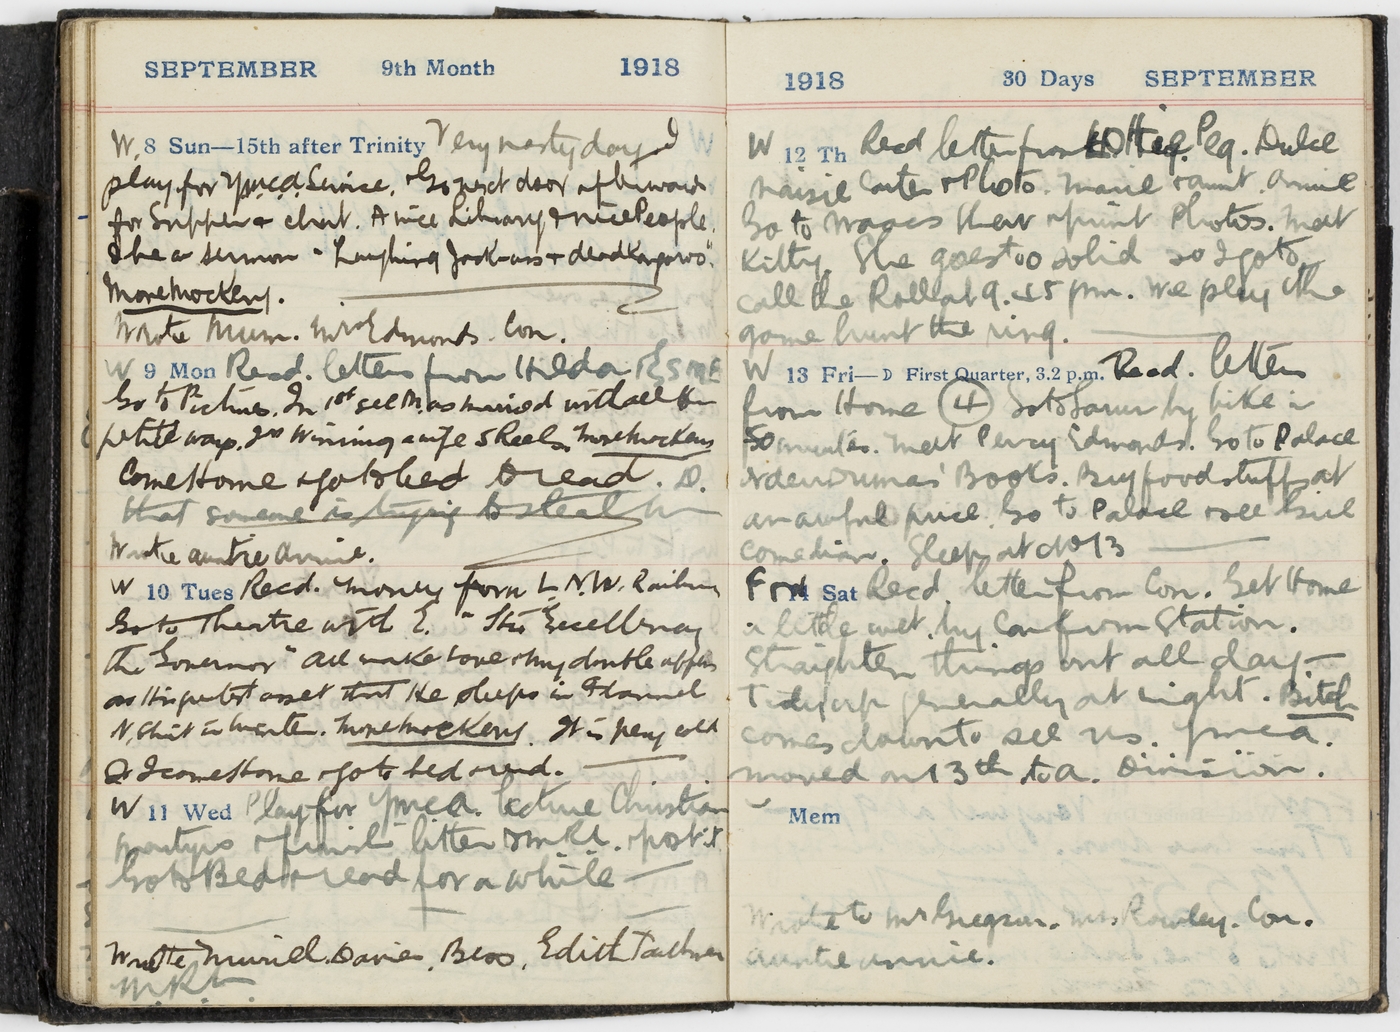 SEPTEMBER 9th Month 1918
W. 8 Sun—15th after Trinity Very nasty day I
play for Ymca Service. & Go next door afterwards
for Supper & chat. A nice Library & nice People.
& hear sermon "Laughing Jack-ass & dead Kangaroo".
More Mockery.
Wrote Mum. Mrs Edmonds. Con.
W 9 Mon Recd. letters from Hilda & Esme
Go to Pictures. In 1st see married with all the
petite ways. 2nd Winning a wife 5 Reels. More Mockery
Come Home & go to bed to read. D.
that someone is trying to steal
Wrote auntie Annie.
W 10 Tues Recd. money from L.N.W. Railway
Go to Theatre with E. "His Excellency
the Governor" all make love & my double appears
as his greatest asset that He sleeps in Flannel
N. Shirt in winter. More Mockery. It is very cold
& I come Home & go to bed & read.
W 11 Wed Play for Ymca. lecture Christian
martyrs & finish letter to MKL. & post it
Go to Bed & read for a while
Wrote Muriel. Davies, Bess, Edith Faulkner
1918 30 Days SEPTEMBER
W 12 Th Recd letter from Peg. Dulce
Maisie Carter & Photo. Marie & aunt. Annie
Go to & print Photos. Meet
Kitty. She goes too solid so I go to
call the Roll at 9.45 pm. We play the
game hunt the ring.
W 13 Fri—D First Quarter, 3.2 p.m. Recd. letters
from Home (4) Go to by bike in
50 minutes. Meet Percy Edmonds. Go to Palace
& den Dumas' Books. Buy foodstuffs at
an awful price. Go to Palace & see
comedian. Sleep at No 13
14 Sat Recd letter from Con. Get Home
a little wet. by Car from Station.
Straighten things out all day—
Tidy up generally at night. Bitch
comes down to see us. Ymca.
moved on 13th to a. Division.
Mem
Wrote to Mr Gregson. Mrs Rowley. Con.
auntie annie.